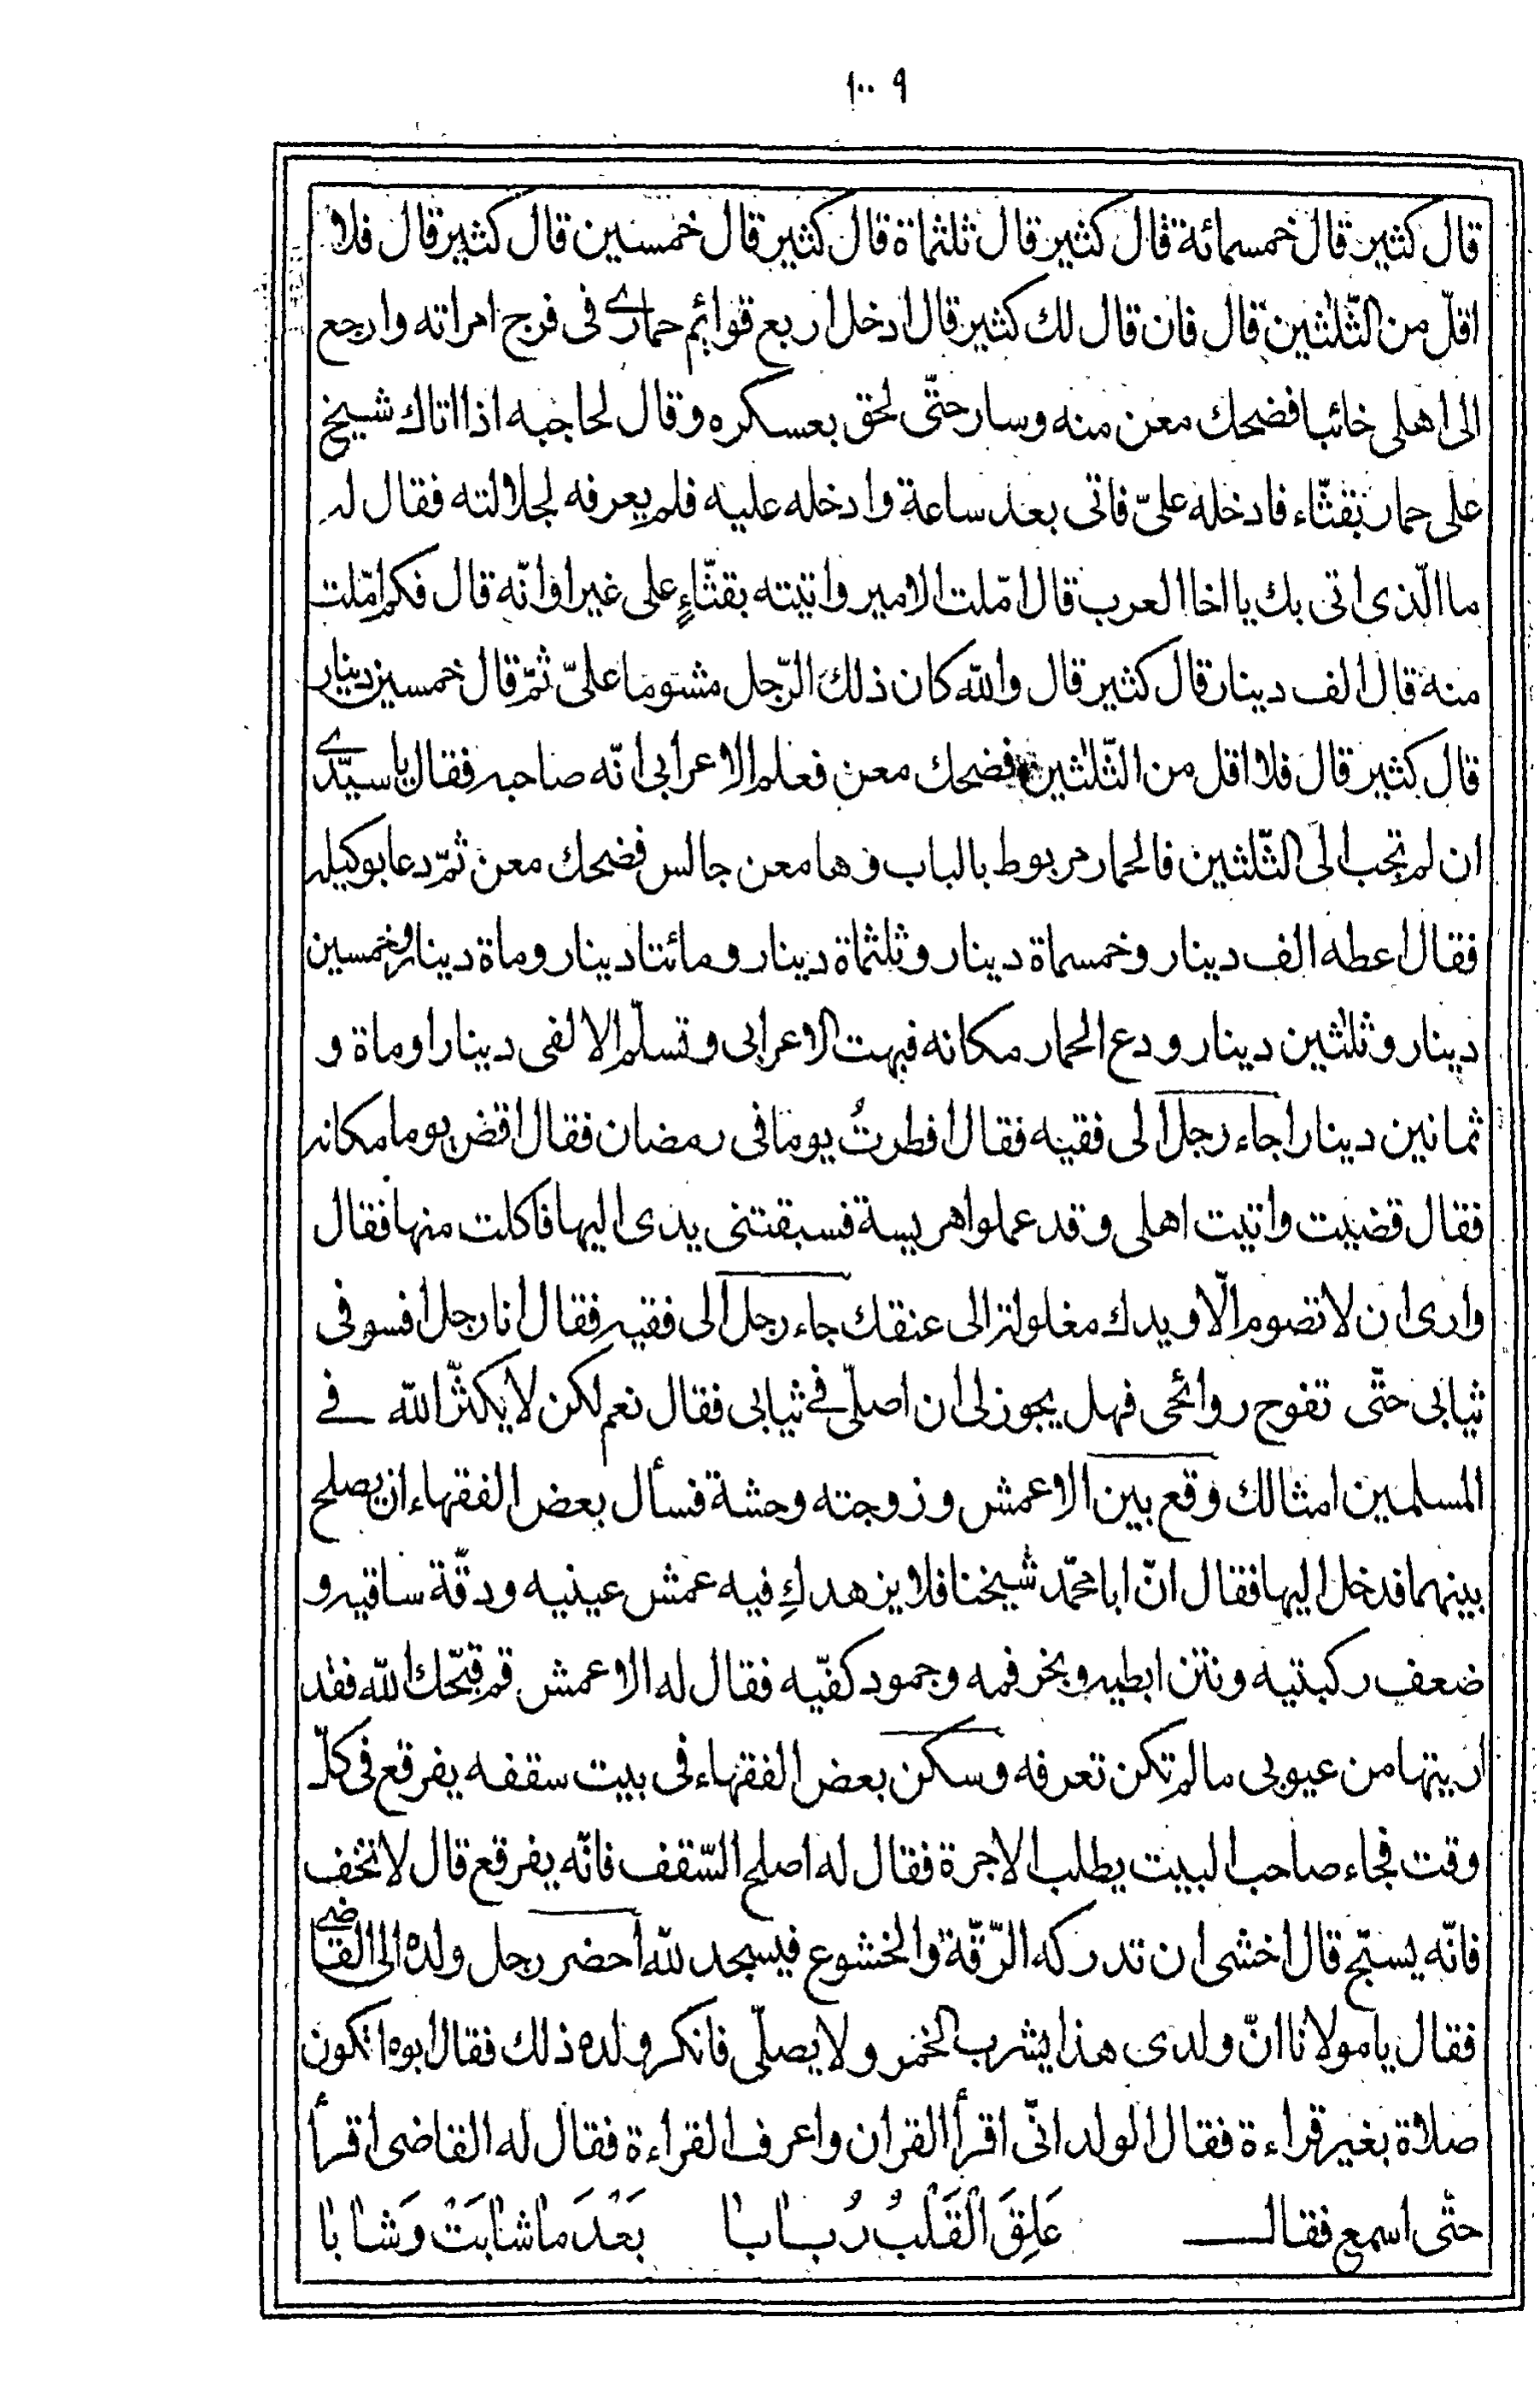 ١٠٠٩
قال كثير قال خمسمائة قال كثير قال ثلثماة قال كثير قال خمسين قال كثير قال فلا
اقلّ من الثّلثين قال فان قال لك كثير قال ادخل اربع قوائم حمارى فى فرج امراته وارجع
الى اهلى خائبا فضحك معن منه وسار حتّى لحق بعسكره وقال لحاجبه اذا اتاك شيخ
على حمار بقثّاء فادخله علىّ فاتى بعد ساعة وادخله عليه فلم يعرفه لجلالته فقال له
ما الّذى اتى بك يا اخا العرب قال امّلت الامير واتيته بقثّاءٍ على غير اوانّه قال فكم امّلت
منه قال الف دينار قال كثير قال والله كان ذلك الرّجل مشوما علىّ ثمّ قال خمسين دينار
قال كثير قال فلا اقل من الثّلثين فضحك معن فعلم الاعرابى انّه صاحبه فقال يا سيّدى
ان لم تجب الى الثّلثين فالحمار مربوط بالباب وها معن جالس فضحك معن ثمّ دعا بوكيله
فقال اعطه الف دينار وخمسماة دينار وثلثماة دينار ومائتا دينار وماة دينار وخمسين
دينار وثلثين دينار ودع الحمار مكانه فبهت الاعرابى وتسلّم الالفى دينارا وماة و
ثمانين دينارا جاء رجل الى فقيه فقال افطرتُ يوما فى رمضان فقال اقض يوما مكانه
فقال قضيت واتيت اهلى وقد عملوا هريسة فسبقتنى يدى اليها فاكلت منها فقال
وارى ان لا تصوم الّا ويدك مغلولة الى عنقك جاء رجل الى فقيه فقال انا رجل افسو فى
ثيابى حتّى تفوح روائحى فهل يجوز لى ان اصلّى فى ثيابى فقال نعم لكن لا يكثّر الله فى
المسلمين امثالك وقع بين الاعمش وزوجته وحشة فسأل بعض الفقهاء ان يصلح
بينهما فدخل اليها فقال انّ ابا محمّد شيخنا فلا يزهدكِ فيه عمش عينيه ودقّة ساقيه و
ضعف ركبتيه ونتن ابطيه وبخر فمه وجمود كفّيه فقال له الاعمش قم قبّحك الله فقد
اريتها من عيوبى ما لم تكن تعرفه وسكن بعض الفقهاء فى بيت سقفه يفرقع فى كلّ
وقت فجاء صاحب البيت يطلب الاجرة فقال له اصلح السّقف فانّه يفرقع قال لا تخف
فانّه يسبّح قال اخشى ان تدركه الرّقّة والخشوع فيسجد لله احضر رجل ولده الى القاضى
فقال يا مولانا انّ ولدى هذا يشرب الخمر ولا يصلّى فانكر ولده ذلك فقال ابوه اتكون
صلاة بغير قراءة فقال الولد انّى اقرأ القران واعرف القراءة فقال له القاضى اقرأ
حتّى اسمع فقال عَلِقَ الْقَلْبُ رُبابا بَعْدَ ما شابَتْ وَشابا